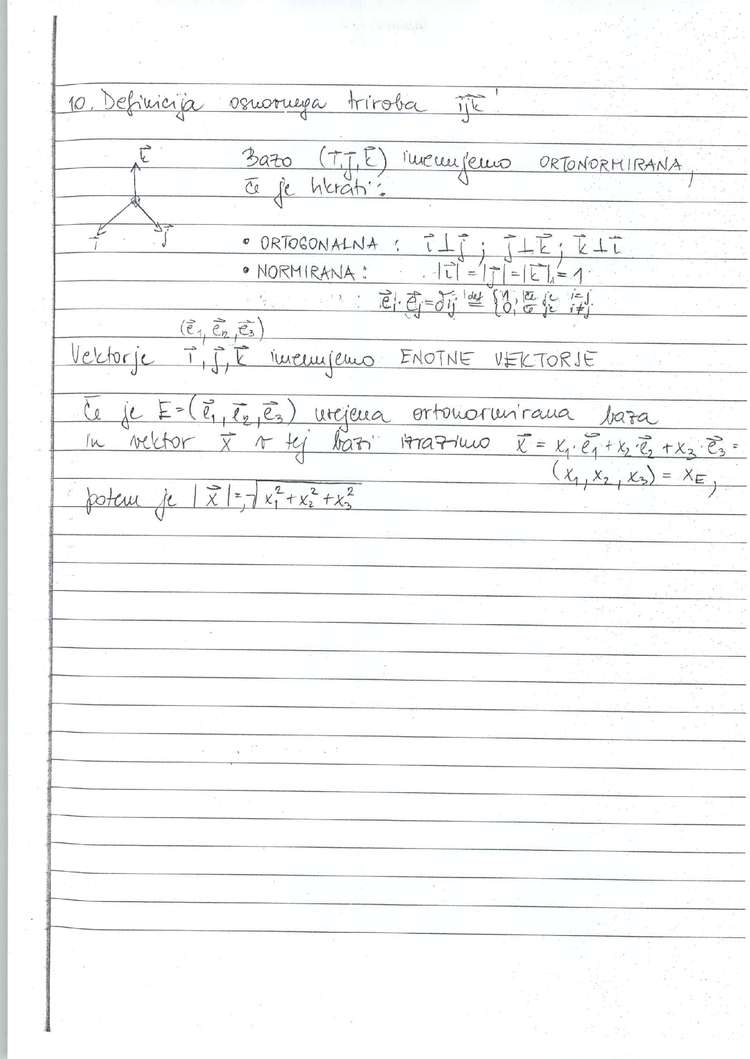 10. Definicija osnovnega triroba i⃗j⃗k⃗
k⃗
i⃗
j⃗
Bazo (i⃗, j⃗, k⃗) imenujemo ORTONORMIRANA,
če je hkrati:
• ORTOGONALNA : i⃗⊥j⃗ ; j⃗⊥k⃗ ; k⃗⊥i⃗
• NORMIRANA : |i⃗|=|j⃗|=|k⃗|=1
e⃗ᵢ·e⃗ⱼ=δᵢⱼ ≝ {1, če je i=j
0, če je i≠j
(e⃗₁, e⃗₂, e⃗₃)
Vektorje i⃗, j⃗, k⃗ imenujemo ENOTNE VEKTORJE
Če je E=(e⃗₁, e⃗₂, e⃗₃) urejena ortonormirana baza
in vektor x⃗ v tej bazi izrazimo x⃗ = x₁·e⃗₁+x₂·e⃗₂+x₃·e⃗₃=
(x₁, x₂, x₃) = x_E,
potem je |x⃗|=√(x₁²+x₂²+x₃²)